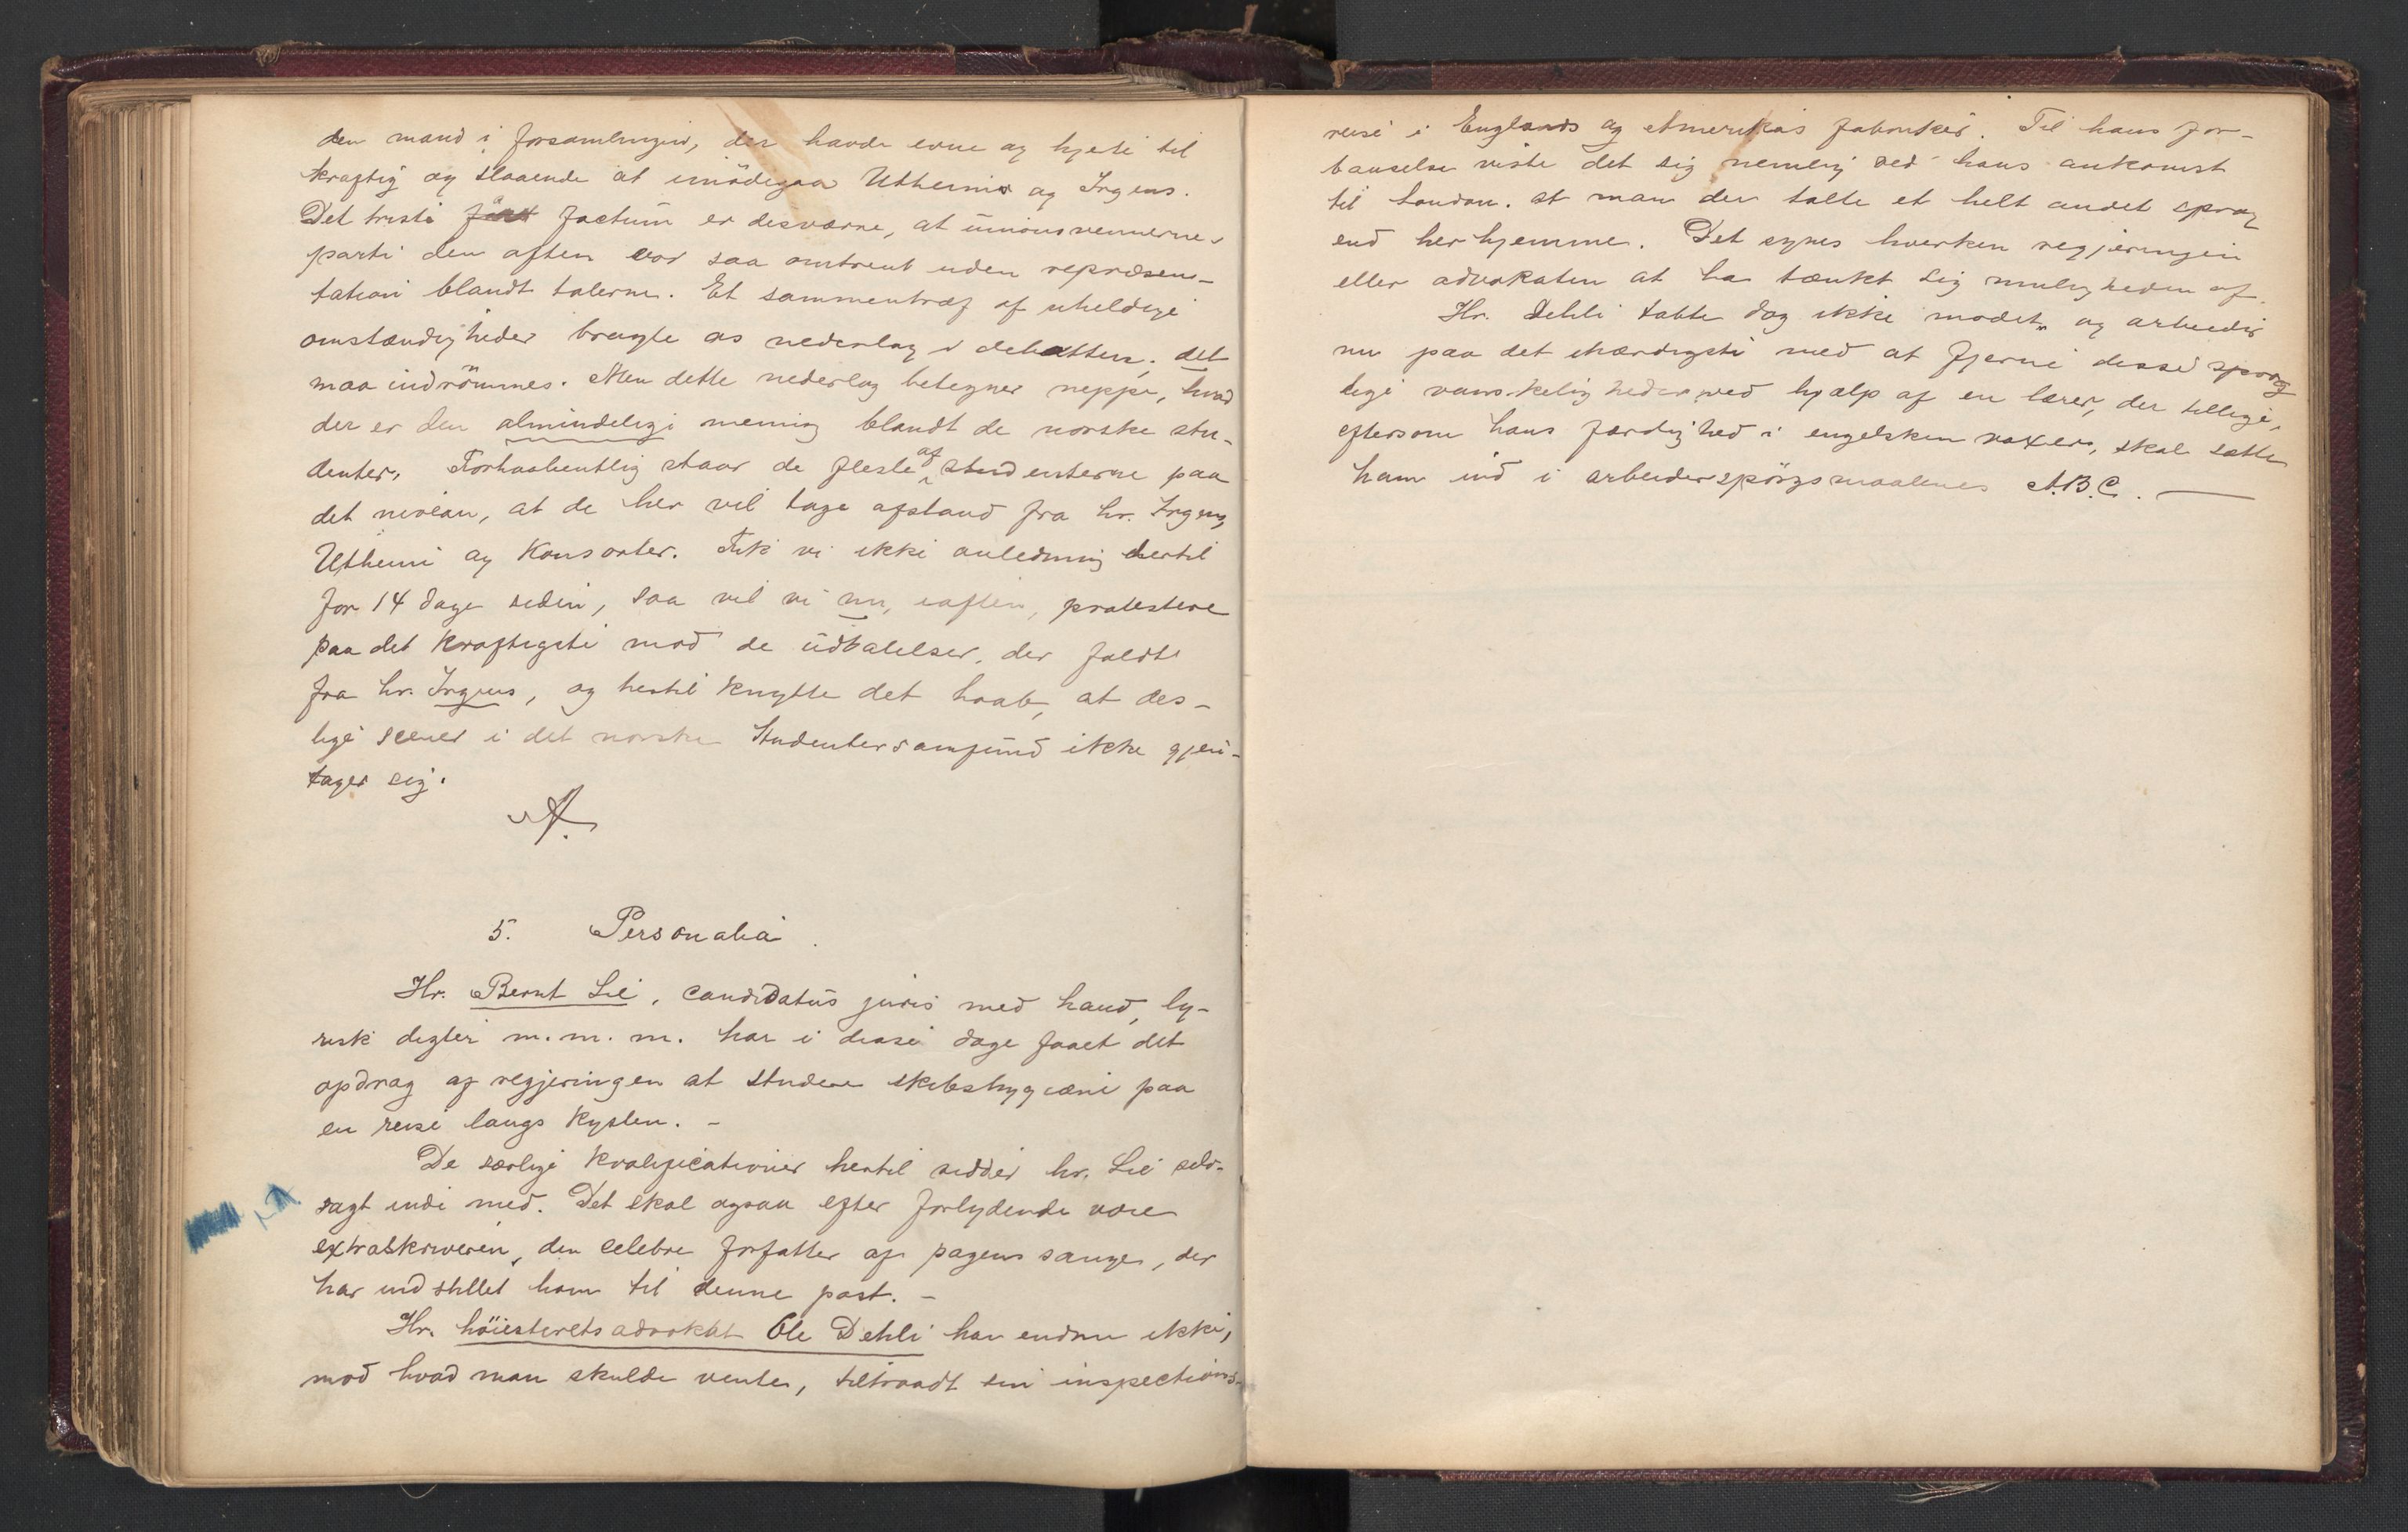 den mand i forsamlingen, der havde evne og hjerte til
kraftig og slaaende at imödegaa Utheim og Irgens.
Det triste factum er desværre, at unionsvennernes
parti den aften var saa omtrent uden repræsen-
tation blandt talerne. Et sammentræf af uheldige
omstændigheder bragte os nederlag i debatten; det
maa indrömmes. Men dette nederlag betegner neppe, hvad
der er den almindelige mening blandt de norske stu-
denter. Forhaabentlig staar de fleste af studenterne paa
det niveau, at de her vil tage afstand fra hr. Irgens,
Utheim og Konsorter. Fik vi ikke anledning hertil
for 14 dage siden, saa vil vi nu, iaften, protestere
paa det kraftigste mod de udtalelser, der faldt
fra hr. Irgens, og hertil knytte det haab, at des-
lige scener i det norske Studentersamfund ikke gjen-
tager sig.
A.
5. Personalia.
Hr. Bernt Lie, candidatus juris med haud, ly-
risk digter m.m.m. har i disse dage faaet det
opdrag af regjeringen at studere skibshygiæne paa
en reise langs Kysten. -
De særlige kvalificationer hertil sidder hr. Lie selv-
sagt inde med. Det skal ogsaa efter forlydende være
extraskriveren, den celebre forfatter af pagens sange, der
har indstillet ham til denne post. -
Hr. höiesteretsadvokat Ole Dehli har endnu ikke,
mod hvad man skulde vente, tiltraadt sin inspections-
reise i Englands og Amerikas fabrikker. Til hans for-
bauselse viste det sig nemlig ved hans ankomst
til London. at man der talte et helt andet sprog
end herhjemme. Det synes hverken regjeringen
eller advokaten at ha tænkt sig muligheden af.
Hr. Dehli tabte dog ikke modet, og arbeider
nu paa det ihærdigste med at fjerne disse sprog
lige vanskeligheder ved hjælp af en lærer, der tillige,
eftersom hans færdighed i engelsken voxer, skal sætte
ham ind i arbeiderspörgsmaalenes A.B.C. —